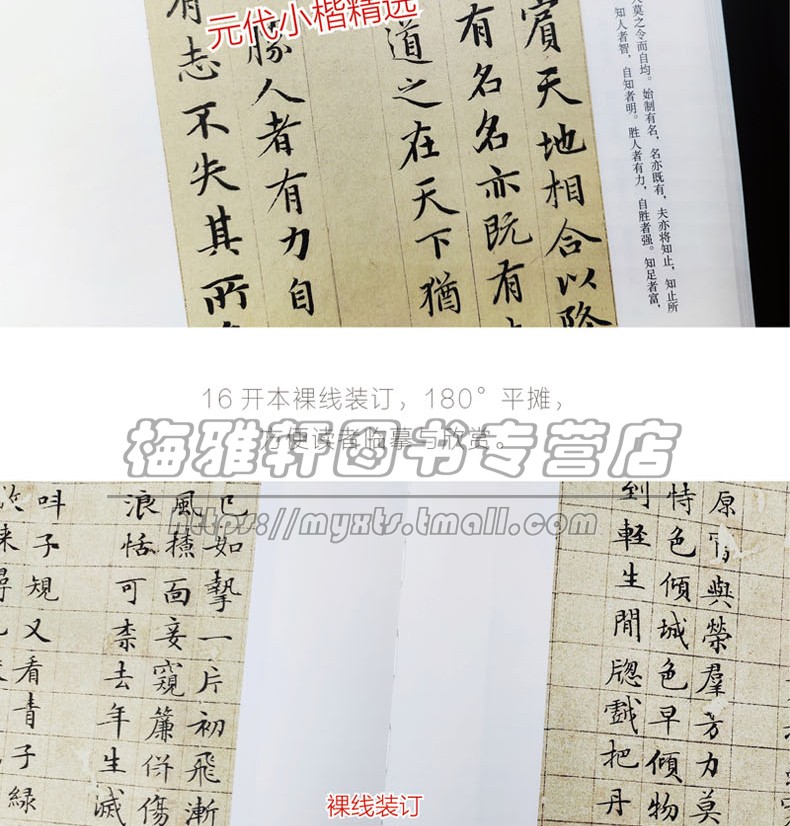 元代小楷精选
莫之令而自均。始制有名，名亦既有，夫亦将知止，知止所
知人者智，自知者明。胜人者有力，自胜者强。知足者富，
賔天地相合以降
有名名亦既有
道之在天下猶
勝人者有力自
有志不失其所
16开本裸线装订，180°平摊，
方便读者临摹与欣赏。
梅雅轩图书专营店
https://myxts.tmall.com
原與榮羣芳力莫
恃色傾城色早傾物
到輕生閒牎戲把丹
已如摯一片初飛漸
風面妾窺簾併傷
浪恬可柰去年生滅
呌子規又看青子緑
裸线装订